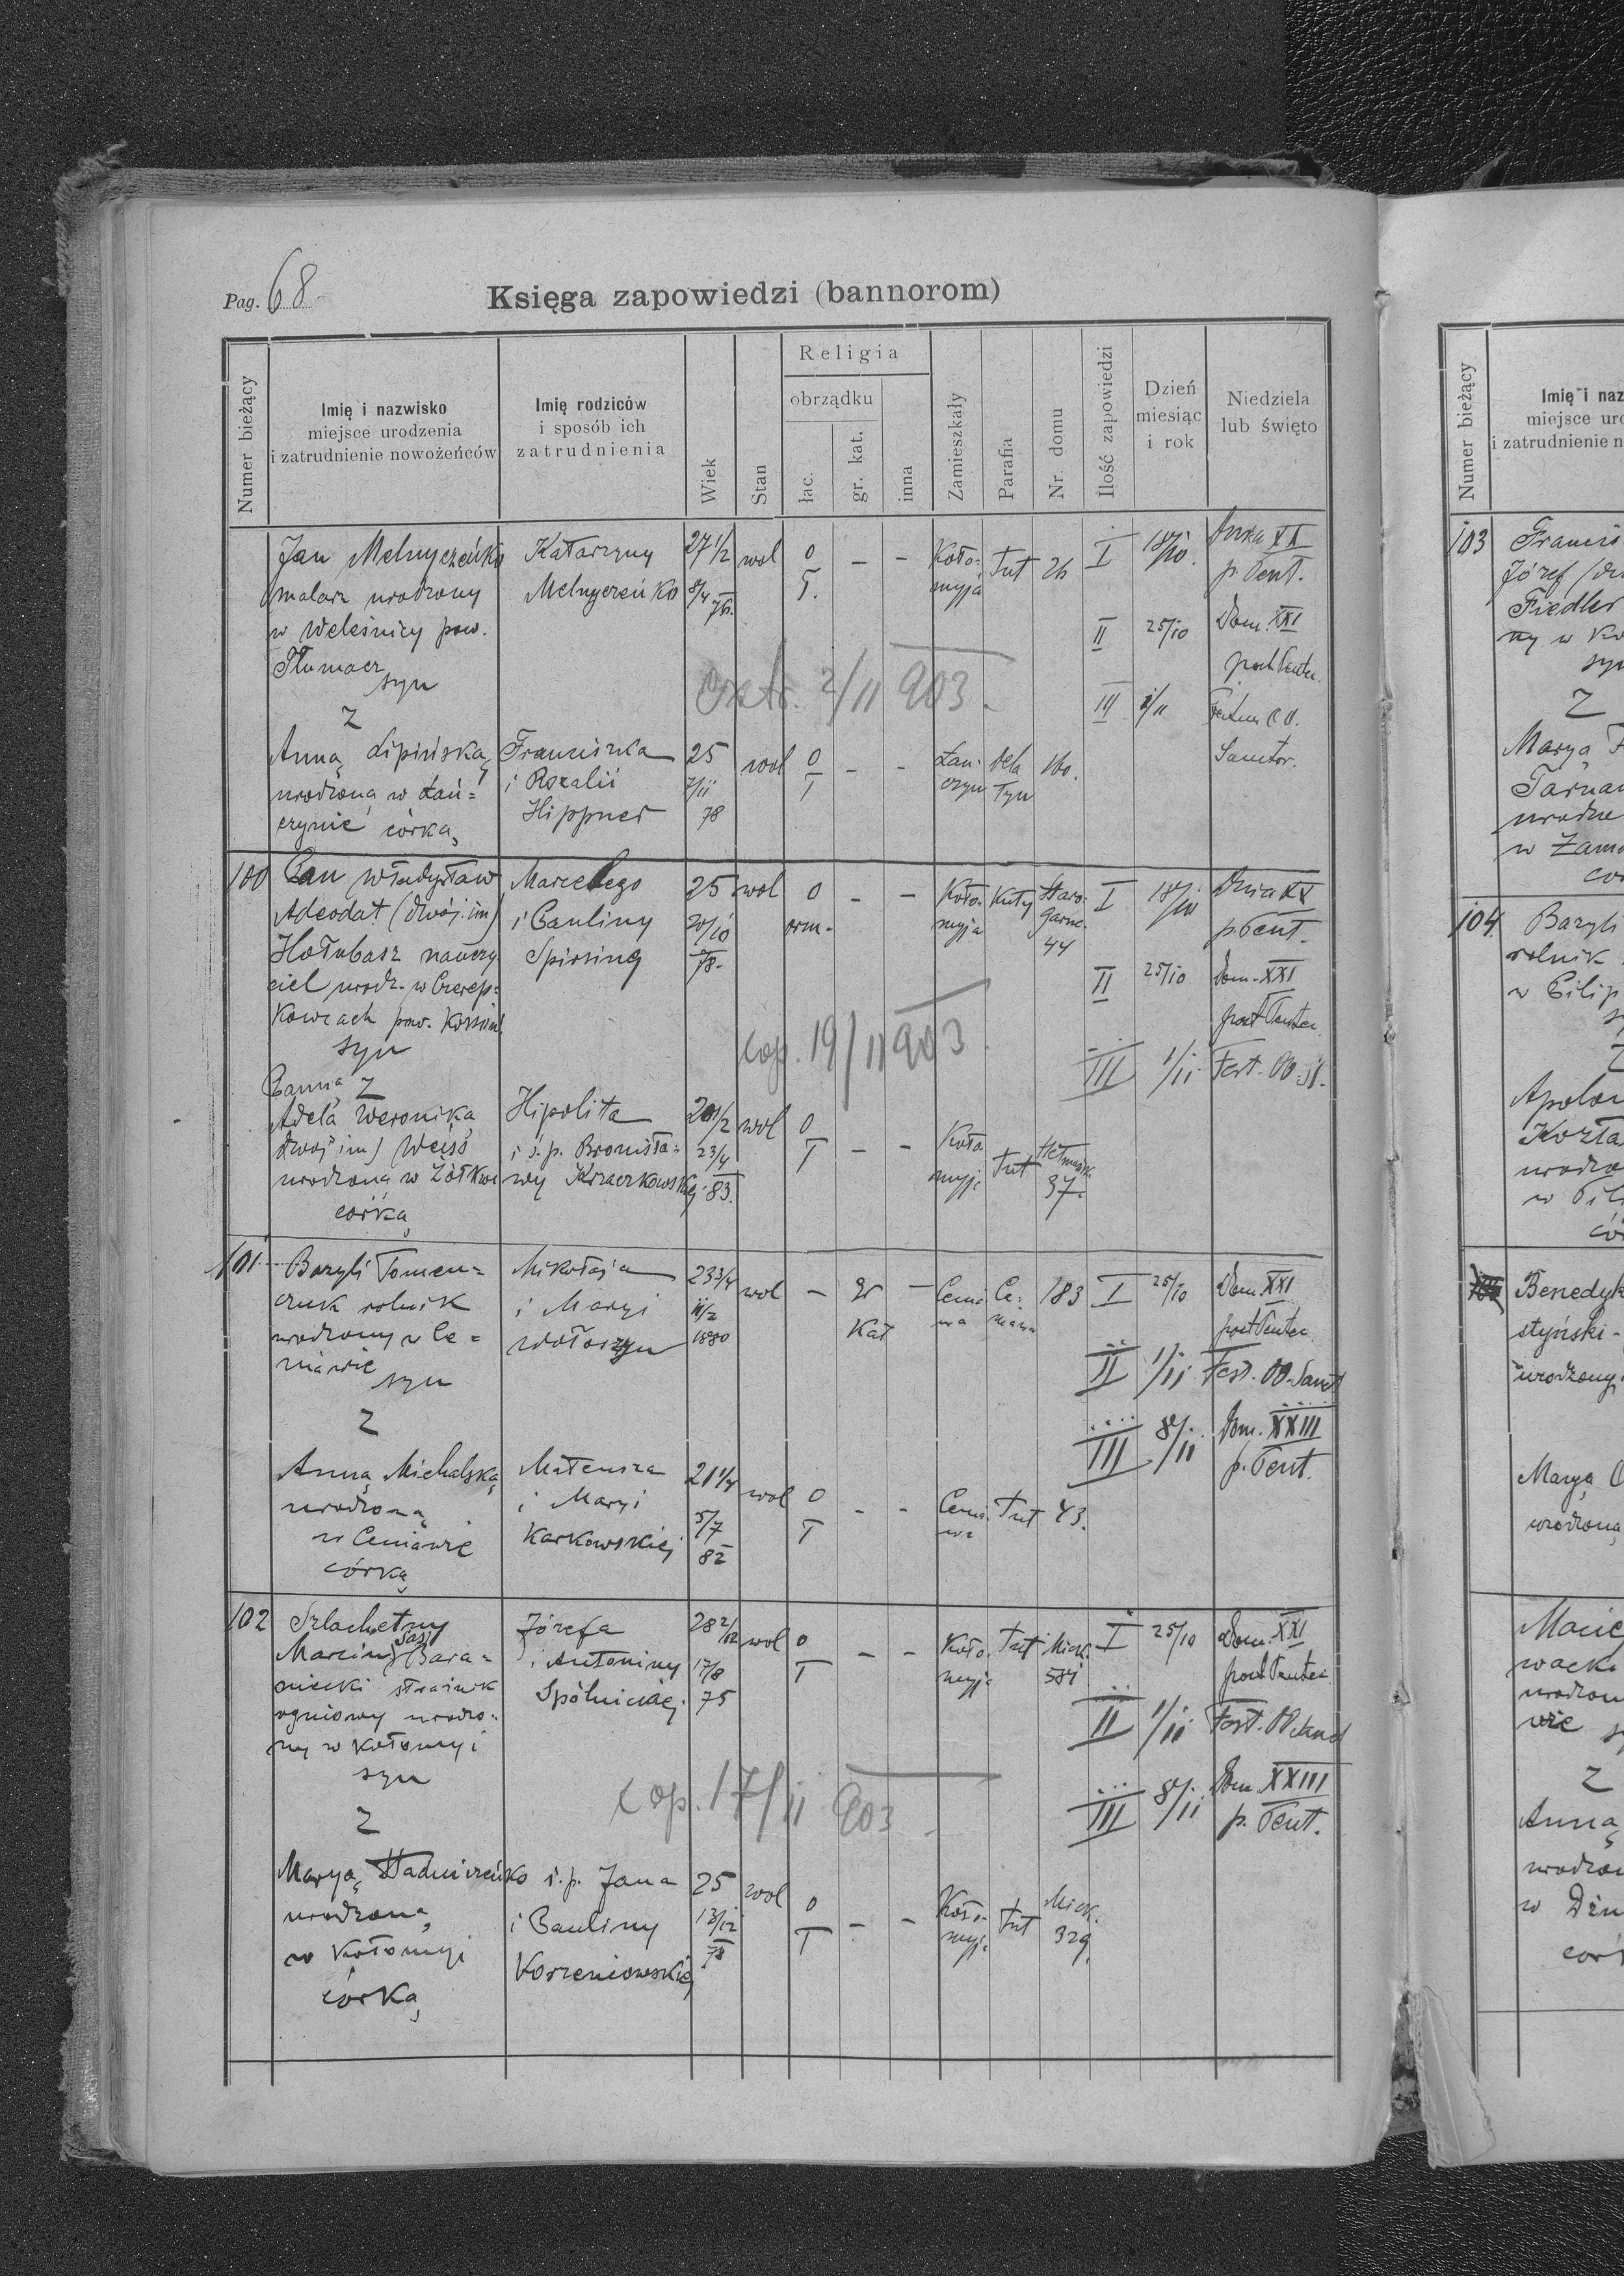 Pag. 68
Księga zapowiedzi (bannorom)
Numer bieżący
Imię i nazwisko
miejsce urodzenia
i zatrudnienie nowożeńców
Imię rodziców
i sposób ich
zatrudnienia
Wiek
Stan
Religia
obrządku
łac.
gr. kat.
inna
Zamieszkały
Parafia
Nr. domu
Ilość zapowiedzi
Dzień
miesiąc
i rok
Niedziela
lub święto
Jan Melnyczeńko
malarz urodzony
w Weleśnicy pow.
Tłumacz
syn
Z
Anną Lipińską
urodzoną w Łań=
czynie córką
Katarzyny
Melnyczeńko
Franciszka
i Rozalii
Hippner
27 1/2
8/4 76.
25
7/ii
78
wol
wol
o
T.
o
T
-
-
-
-
Koło=
myja
Łan=
czyn
Tut
Dela
Tyn
26
160.
I 18/10.
p. Pent.
II 25/10 Dom. XXI
post Pentec.
III 1/11
Sanctor.
2/11 903.
100
Pan Władysław
Adeodat (dwoj. im)
Hołubasz nauczy
ciel urodz. w Czerep=
kowcach pow.
syn
Panną Z
Adelą Weroniką
dwoj im) Weiss
urodzoną w Żółkwi
córką
Marcelego
i Pauliny
Spirsing
Hipolita
i ś. p. Bronisła=
wy Kraczkowskiej
25
20/10
78.
20 1/2
23/4
83.
wol
wol
o
orm.
o
T
-
-
-
-
Koło=
myja
Koło
myj.
Kuty
Tut
Staro
Garnc.
44
37.
I 18/10
p. Pent.
II 25/10 Dom. XXI
post Pentec
III 1/ii Fest. OO. SS.
cop. 19/11 903.
101
Bazyli Tomen=
czuk rolnik
urodzony w Ce=
niawie
syn
Z
Anną Michalską
urodzoną
w Ceniawie
córką
Mikołaja
i Maryi
Wołoszyn
Mateusza
i Maryi
Karkowskiej
23 3/4
11/2
1880
21 1/4
5/7
82
wol
wol
-
o
T
gr
Kat
-
-
-
Cenia
wa
Cenia
wa
Ce=
niawa
Tut
183
43.
I 25/10 Dom. XXI
post Pentec.
II 1/ii Fest. OO. Sanct
III 8/ii Dom. XXIII
p. Pent.
102
Szlachetny
Marcin Sas Bara=
niecki strażnik
ogniowy urodzo=
ny w Kołomyi
syn
Z
Maryą Hadniczeńko
urodzoną
w Kołomyi
córką
Józefa
i Antoniny
Spólnickiej
ś. p. Jana
i Pauliny
Korzeniowskiej
28 2/12
17/8
75
25
13/12
78
wol
wol
o
T
o
T
-
-
-
-
Koło
myja
Koło=
myja
Tut
Tut
Mick.
581
Mick.
329
I 25/10 Dom. XXI
post Pentec
II 1/ii Fest. OO. Sanct
III 8/ii Dom. XXIII
p. Pent.
cop. 17/11 903.
Numer bieżący
Imię i naz
miejsce uro
i zatrudnienie n
103
Francis
Józef (dw
Fiedler
ny w Ko
syn
Z
Maryą
Tarna
urodzo
w Zam
có
104
Bazyli
rolnik
w Pilip
Apolon
Kozła
urodzo
w Pil
có
Benedyk
styński-
urodzony
Maryą
urodzoną
Macie
wacki
urodzon
wie
Z
Anną
urodzon
w Dżu
córk